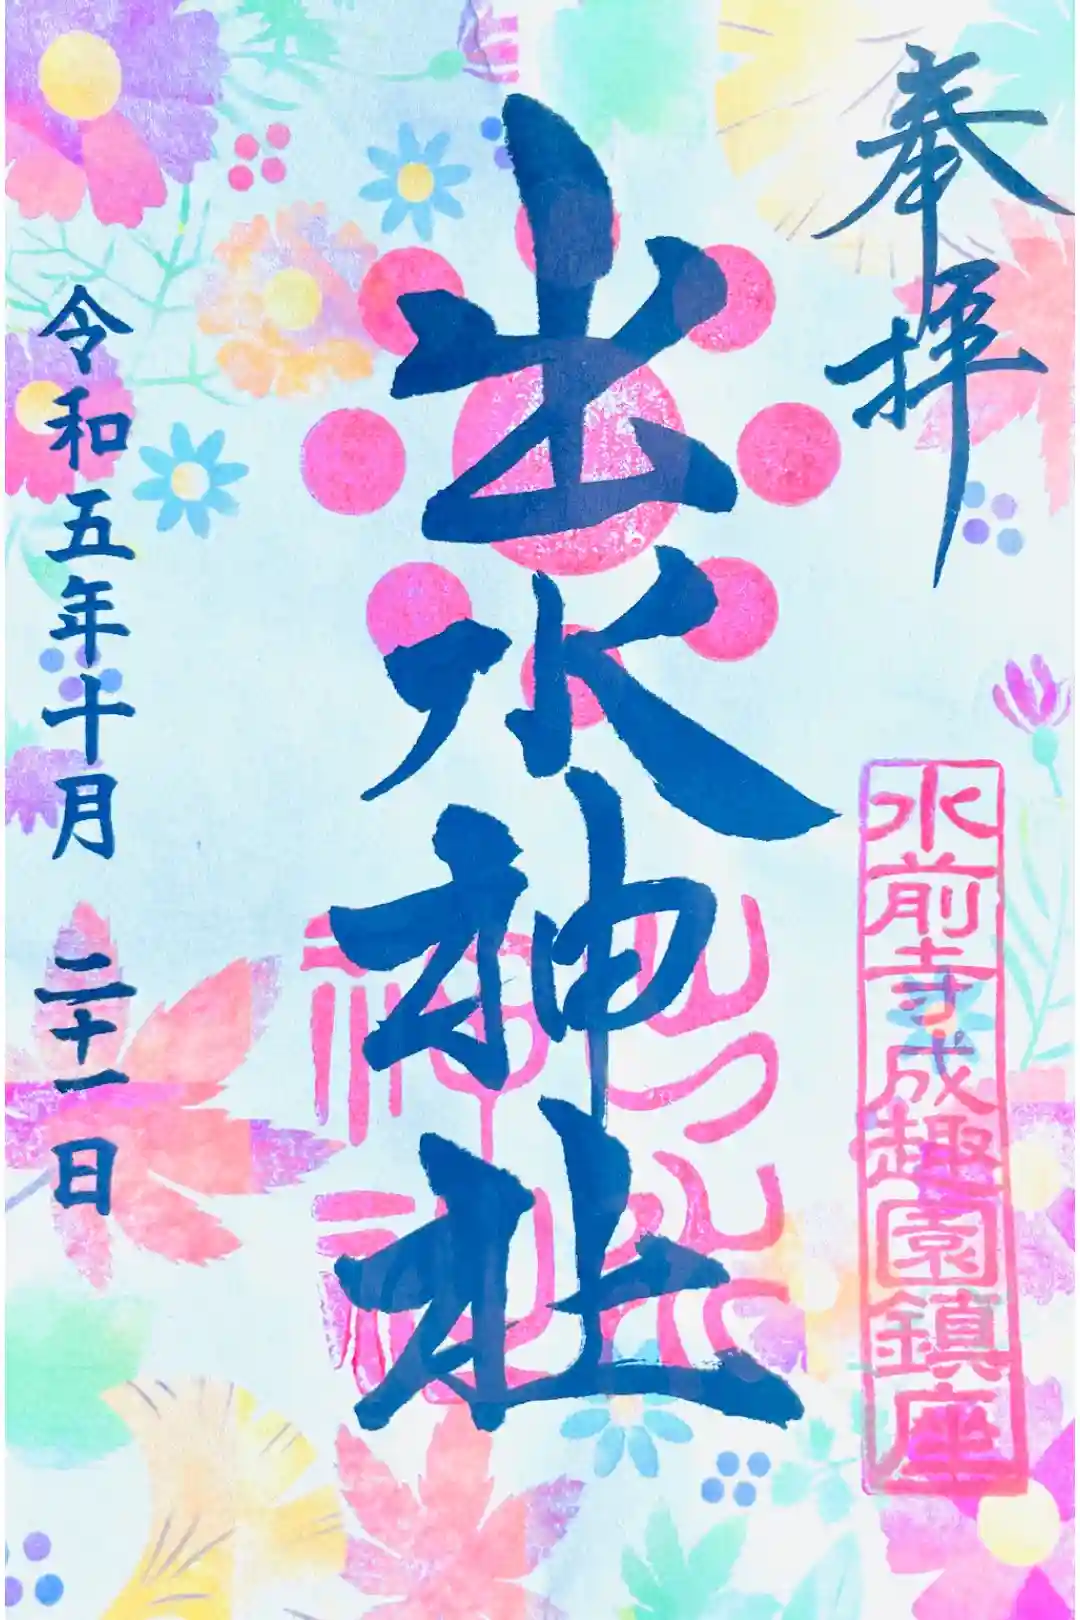 奉拝
水前寺成趣園鎮座
出水神社
出水神社
令和五年十月二十一日